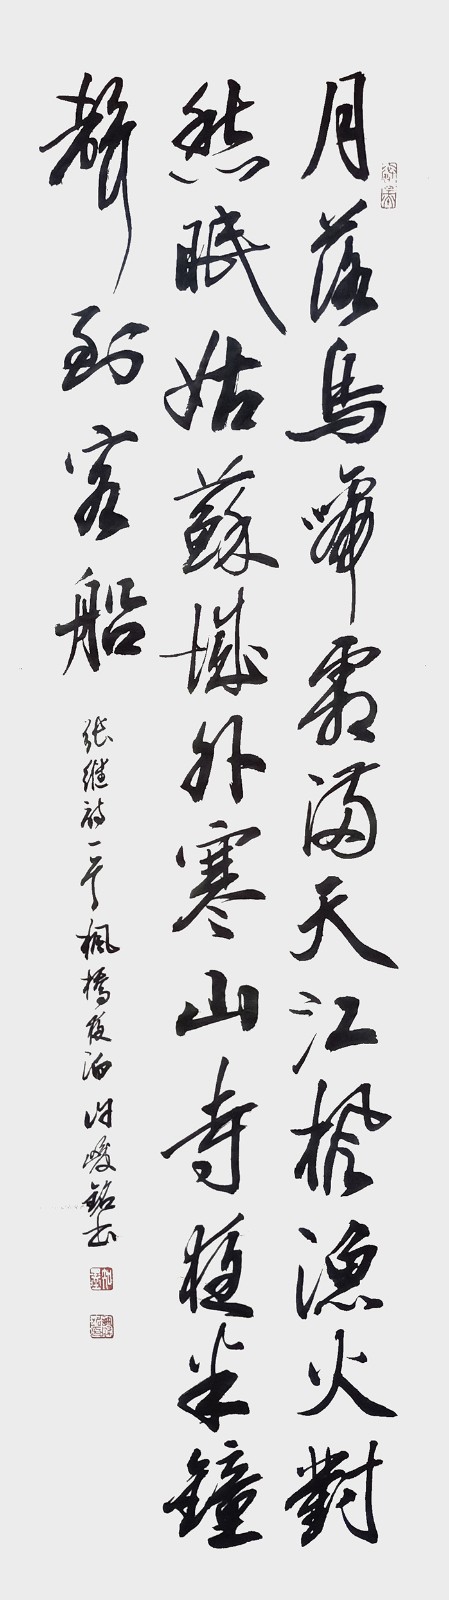 月落烏啼霜滿天江楓漁火對
愁眠姑蘇城外寒山寺夜半鐘
聲到客船
张继詩一首楓橋夜泊许峻銘书